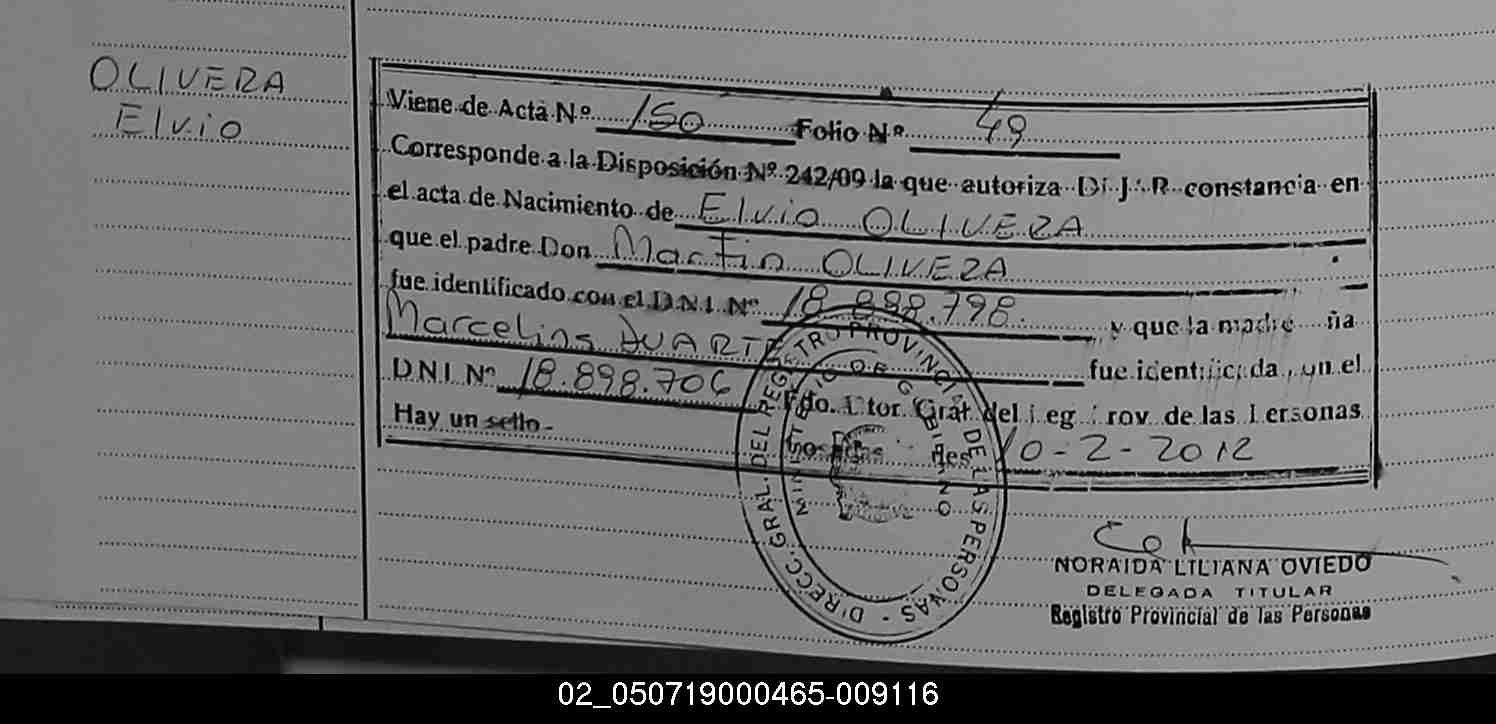 OLIVERA
Elvio
Viene de Acta Nº 150 Folio Nº 49
Corresponde a la Disposición Nº 242/09 la que autoriza D. J. R. constancia en
el acta de Nacimiento de Elvio OLIVERA
que el padre Don Martin OLIVERA
fue identificado con el D.N.I. Nº 18.898.798. y que la madre ña
Marcelina DUARTE fue identificada con el
D.N.I. Nº 18.898.706 Fdo. Dtor. Gral. del Reg. Prov. de las Personas
Hay un sello- 10-2-2012
DIRECC. GRAL. DEL REGISTRO PROVINCIAL DE LAS PERSONAS -
MINISTERIO DE GOBIERNO
NORAIDA LILIANA OVIEDO
DELEGADA TITULAR
Registro Provincial de las Personas
02_050719000465-009116